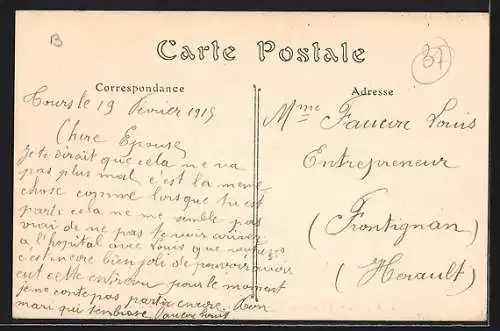 B
37
Carte Postale
Correspondance
Adresse
Tours le 19 Fevrier 1915
Chere Epouse
Je te dirait que cela ne va
pas plus mal c'est la meme
chose comme lorsque tu est
parti cela ne me semble pas
vrai de ne pas te voir arriver
a l'hopital avec Louis que
c'est encore bien joli de pouvoir avoir
eut cette entrevue pour le moment
je ne conte pas partir encore. Ton
mari qui t'embrasse Faucre Louis
Mme Faucre Louis
Entrepreneur
(Frontignan)
(Herault)